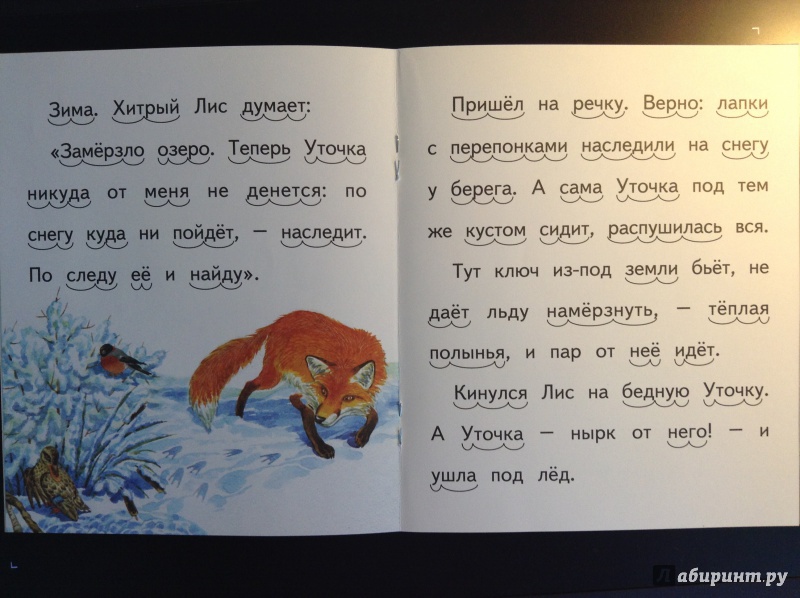 Зима. Хитрый Лис думает:
«Замёрзло озеро. Теперь Уточка
никуда от меня не денется: по
снегу куда ни пойдёт, — наследит.
По следу её и найду».
Пришёл на речку. Верно: лапки
с перепонками наследили на снегу
у берега. А сама Уточка под тем
же кустом сидит, распушилась вся.
Тут ключ из-под земли бьёт, не
даёт льду намёрзнуть, — тёплая
полынья, и пар от неё идёт.
Кинулся Лис на бедную Уточку.
А Уточка — нырк от него! — и
ушла под лёд.
Лабиринт.ру